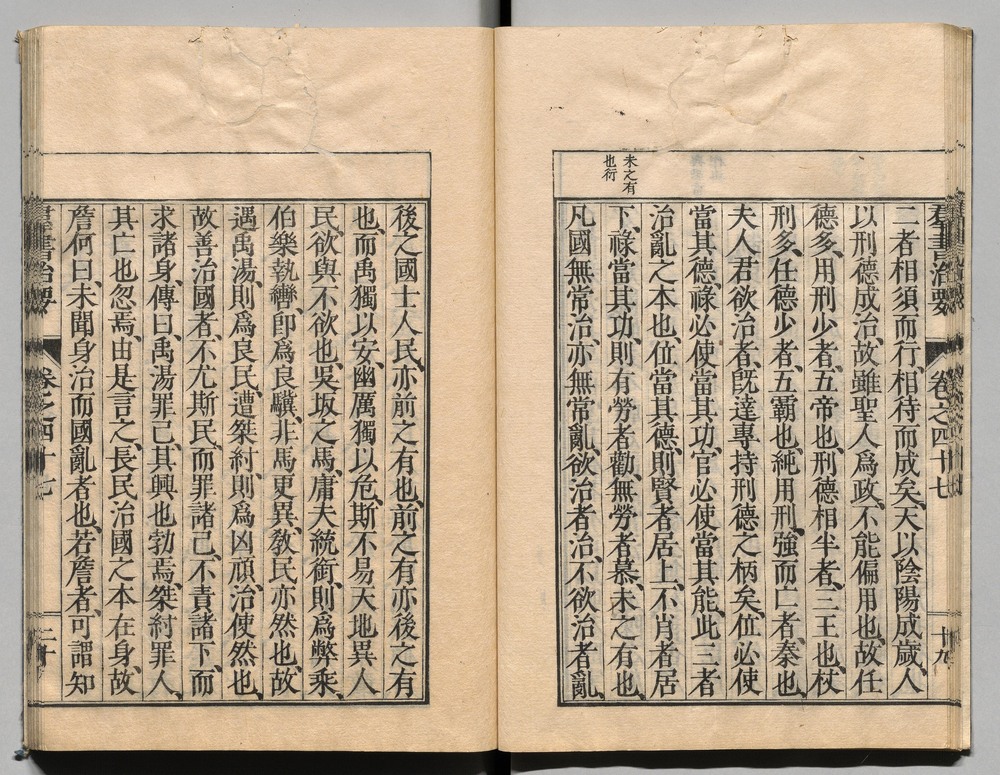 群書治要 卷之四十七 十九
二者相須而行、相待而成矣、天以陰陽成歲、人
以刑德成治、故雖聖人爲政、不能偏用也、故任
德多、用刑少者、五帝也、刑德相半者、三王也、杖
刑多、任德少者、五霸也、純用刑、強而亡者、秦也、
夫人君欲治者、既達專持刑德之柄矣、位必使
當其德、祿必使當其功、官必使當其能、此三者
治亂之本也、位當其德、則賢者居上、不肖者居
下、祿當其功、則有勞者勸、無勞者慕、未之有也、
凡國無常治、亦無常亂、欲治者治、不欲治者亂、
未之有
也衍
後之國士人民、亦前之有也、前之有亦後之有
也、而禹獨以安、幽厲獨以危、斯不易天地異人
民、欲與不欲也、吳坂之馬、庸夫統銜、則爲弊乘、
伯樂執轡、卽爲良驥、非馬更異、敎民亦然也、故
遇禹湯、則爲良民、遭桀紂、則爲凶頑、治使然也、
故善治國者、不尤斯民、而罪諸己、不責諸下、而
求諸身、傳曰、禹湯罪己、其興也勃焉、桀紂罪人、
其亡也忽焉、由是言之、長民治國之本在身、故
詹何曰、未聞身治而國亂者也、若詹者、可謂知
群書治要 卷之四十七 二十